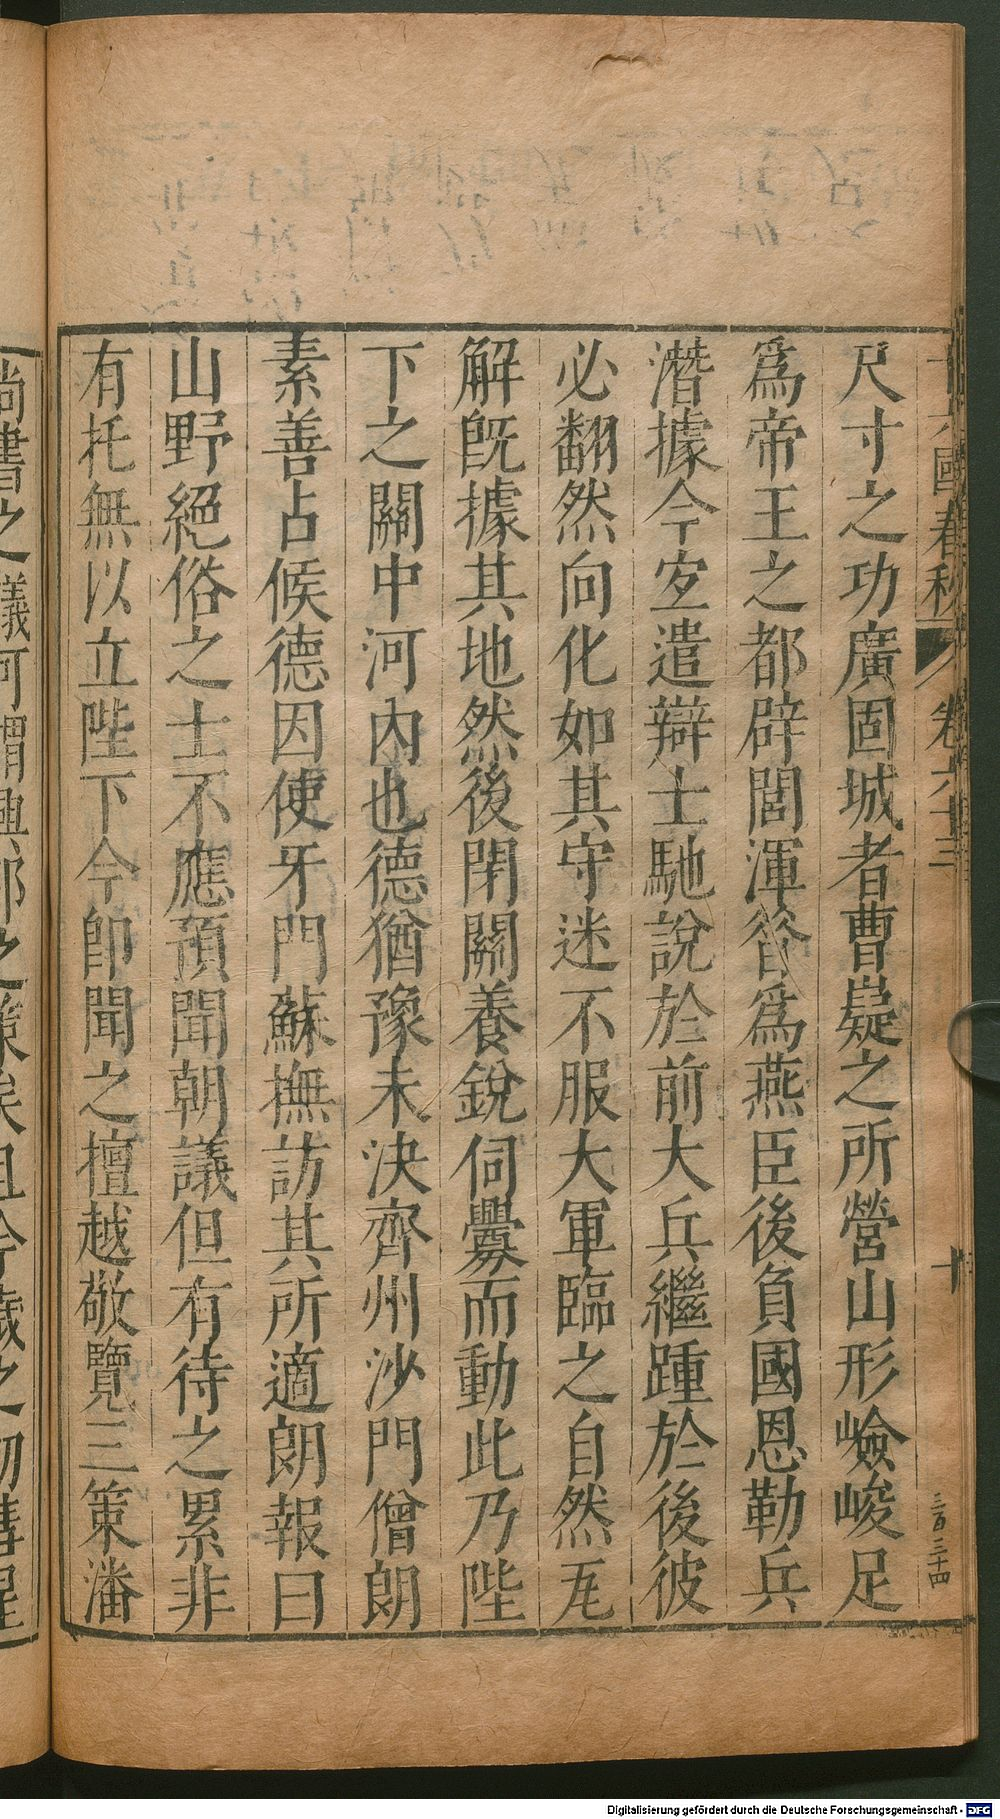 尺寸之功廣固城者曹嶷之所營山形嶮峻足
爲帝王之都辟閭渾昔爲燕臣後負國恩勒兵
潛據今宜遣辯士馳說於前大兵繼踵於後彼
必翻然向化如其守迷不服大軍臨之自然瓦
解旣據其地然後閉關養銳伺釁而動此乃陛
下之關中河內也德猶豫未決齊州沙門僧朗
素善占候德因使牙門蘇撫訪其所適朗報曰
山野絕俗之士不應預聞朝議但有待之累非
有托無以立陛下今卽聞之擅越敬覽三策潘
尚書之議可謂興邦之策矣且今歲之初彗星
十六國春秋 卷六十三 十
三百三十四
Digitalisierung gefördert durch die Deutsche Forschungsgemeinschaft - DFG